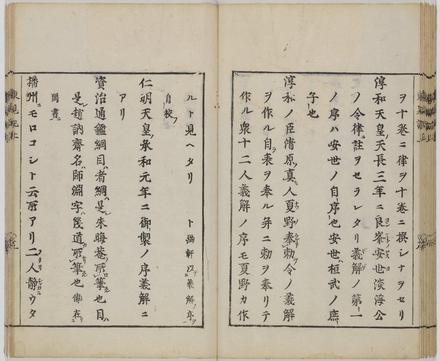 ヲ十巻ニ律ヲ十巻ニ撰シナヲセリ
淳和天皇天長三年ニ良峯安世淡海公
ノ令律註ヲセラレタリ義解ノ第一
ノ序ハ安世ノ自序也安世桓武ノ庶
子也
淳和ノ臣清原真人夏野奉勅令ノ義解
ヲ作ル自表ヲ奉ル年ニ勅ヲ奉リテ
作ル衆十二人義解ノ序モ夏野カ作
ルト見ヘタリ
自校
仁明天皇承和元年ニ御製ノ序義解ニ
アリ
資治通鑑綱目者綱是朱晦菴所筆也目
是趙訥斎名師淵字幾道所筆也
播州ニモロコシト云所アリ二人静ウタ